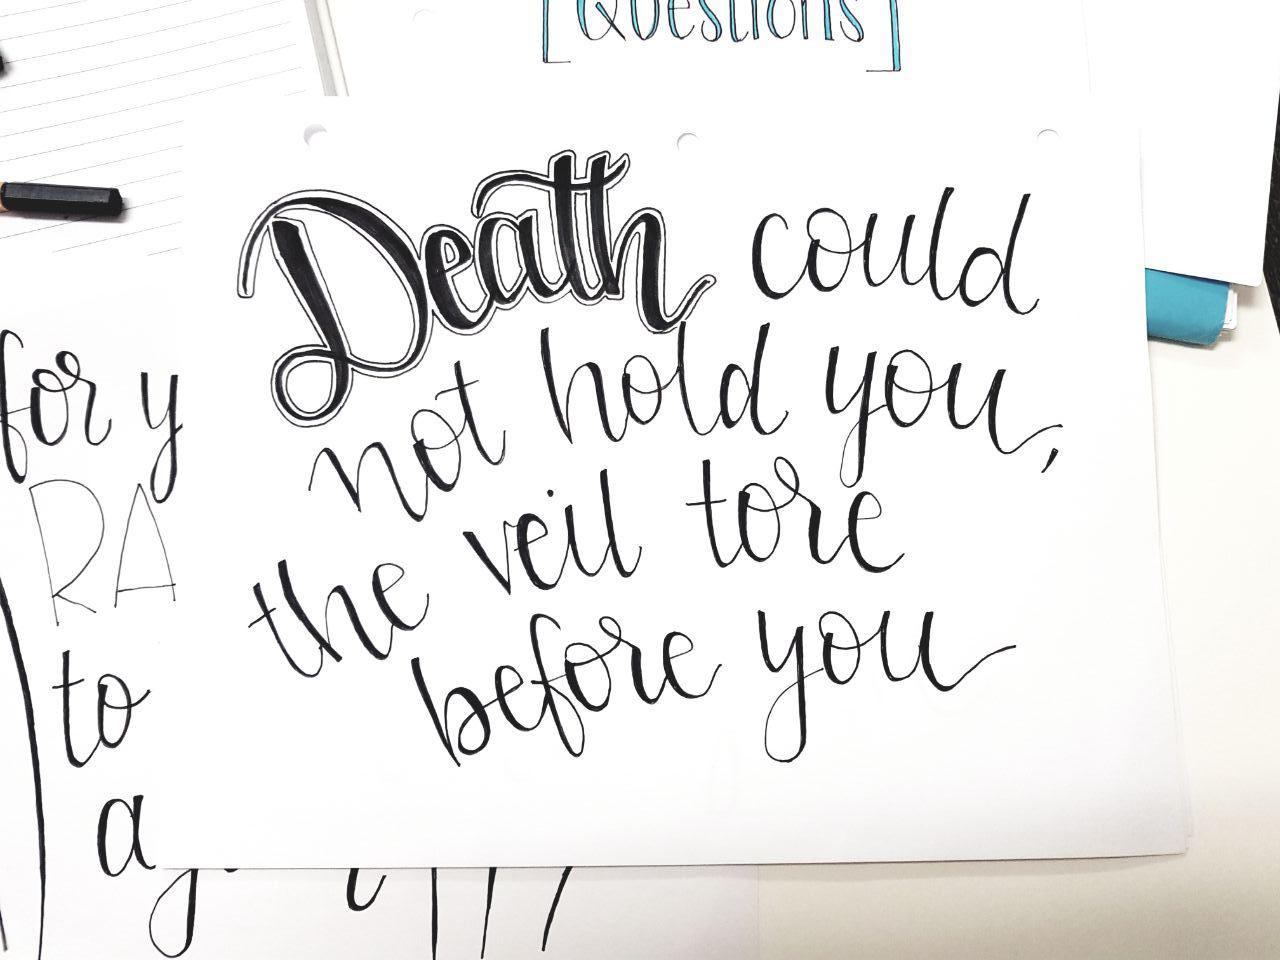 Questions
Death could
not hold you,
the veil tore
before you
for y
RA
to
a